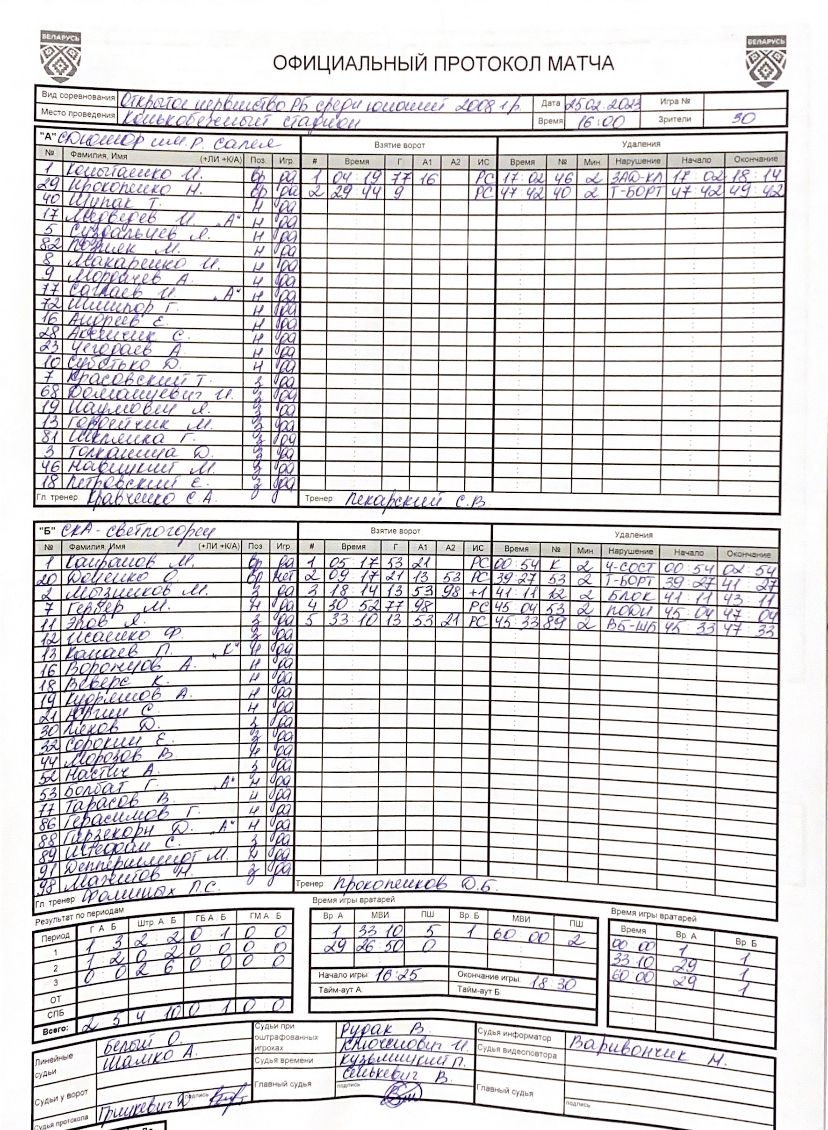 БЕЛАРУСЬ БЕЛАРУСЬ
ОФИЦИАЛЬНЫЙ ПРОТОКОЛ МАТЧА
Вид соревнования Открытое первенство РБ среди юношей 2008 г.р. Дата 25.02.2023 Игра №
Место проведения Конькобежный стадион Время 16:00 Зрители 30
"А" им. Р. Салея Взятие ворот Удаления
№ Фамилия, Имя (+ЛИ +К/А) Поз Игр # Время Г А1 А2 ИС Время № Мин Нарушение Начало Окончание
1 И. вр да 1 04 19 77 16 РС 17 02 46 2 ЗАД-КЛ 17 02 18 14
29 Прокопенко Н. вр да 2 29 44 9 РС 47 42 40 2 Т-БОРТ 47 42 49 42
40 Шупак Т. н да
17 Медведев И. "А" н да
5 Суздальцев Я. н да
82 Позняк М. н да
8 Макаренко И. н да
9 А. н да
77 И. "А" н да
72 Г. н да
16 Андреев Е. н да
28 С. н да
23 А. н да
10 Суботько Д. н да
7 Красовский Т. з да
68 Домашевич И. з да
19 Наумович Я. з да
13 Гордейчик М. з да
81 Г. з да
3 Д. з да
46 Навицкий М. з да
18 Петровский Е. з да
Гл. тренер Кравченко С.А. Тренер Пекарский С.В.
"Б" СКА-Светлогорец Взятие ворот Удаления
№ Фамилия, Имя (+ЛИ +К/А) Поз Игр # Время Г А1 А2 ИС Время № Мин Нарушение Начало Окончание
1 М. вр да 1 05 17 53 21 РС 00 54 К 2 Ч-СОСТ 00 54 02 54
20 О. вр нет 2 09 17 21 13 53 РС 39 27 53 2 Т-БОРТ 39 27 41 27
2 М. з да 3 18 14 13 53 98 +1 41 11 12 2 БЛОК 41 11 43 11
7 Гербер М. н да 4 30 52 77 98 РС 45 04 53 2 45 04 47 04
11 Эров Я. з да 5 33 10 13 53 21 РС 45 33 89 2 ВБ-ШБ 45 33 47 33
12 Исаенко Ф. з да
13 Канаев П. "К" н да
16 Воронцов А. н да
18 Веверс К. н да
19 Кудряшов А. н да
21 Юргин С. н да
30 Д. з да
32 Сорокин Е. з да
44 Морозов В. н да
52 Настич А. з да
53 Болбат Г. "А" н да
77 Тарасов В. н да
86 Герасимов Г. н да
88 Д. "А" н да
89 С. з да
91 М. н да
98 Мажитов Н. з да
Гл. тренер Фоминых П.С. Тренер Прокопенков Д.Б.
Результат по периодам Время игры вратарей Время игры вратарей
Период Г А Б Штр А Б ГБ А Б ГМ А Б Вр. А МВИ ПШ Вр. Б МВИ ПШ Время Вр. А Вр. Б
1 1 3 2 2 0 1 0 0 1 33 10 5 1 60 00 2 00 00 1 1
2 1 2 0 2 0 0 0 0 29 26 50 0 33 10 29 1
3 0 0 2 6 0 0 0 0 60 00 29 1
ОТ Начало игры 16:25 Окончание игры 18:30
СПБ Тайм-аут А Тайм-аут Б
Всего: 2 5 4 10 0 1 0 0
Линейные судьи Белый О. Шамко А.
Судьи при оштрафованных игроках Рудак В. И.
Судья информатор
Судья видеоповтора Варивончик Н.
Судьи у ворот
Судья времени Кузьмицкий П.
Судья протокола Гришкевич Д. подпись
Главный судья Сенькевич В. подпись
Главный судья подпись